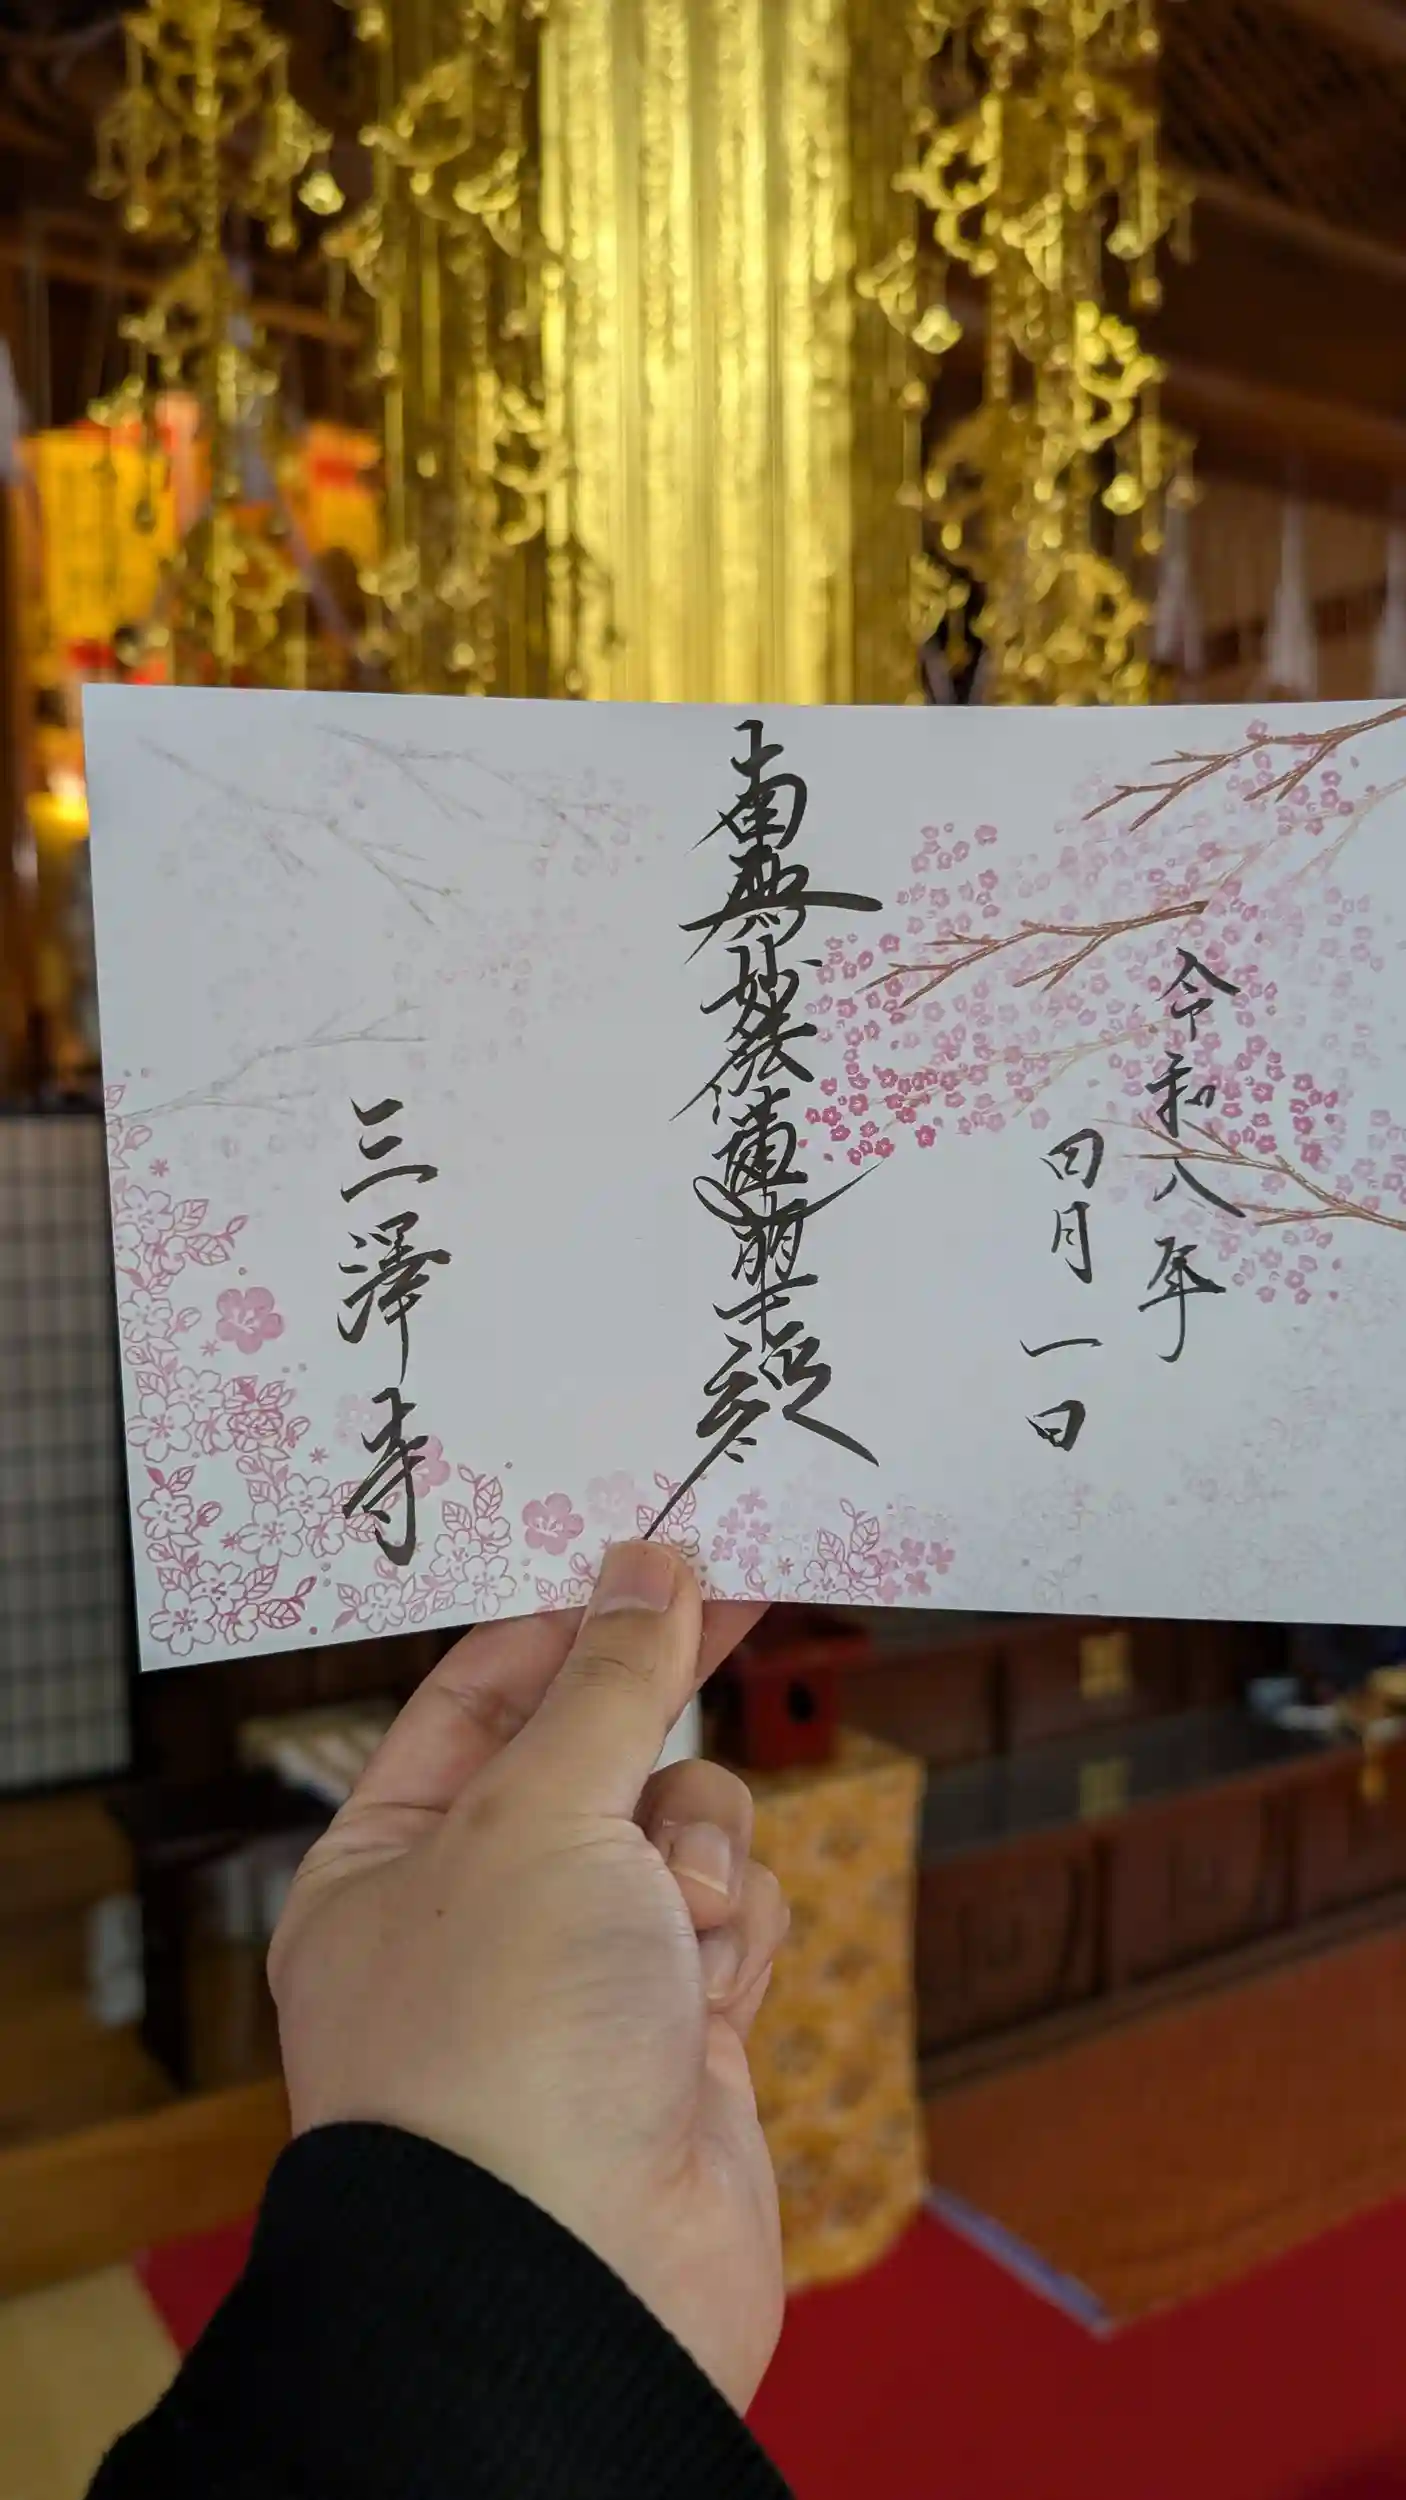 令和八年
四月一日
南無妙法蓮華経
三澤寺